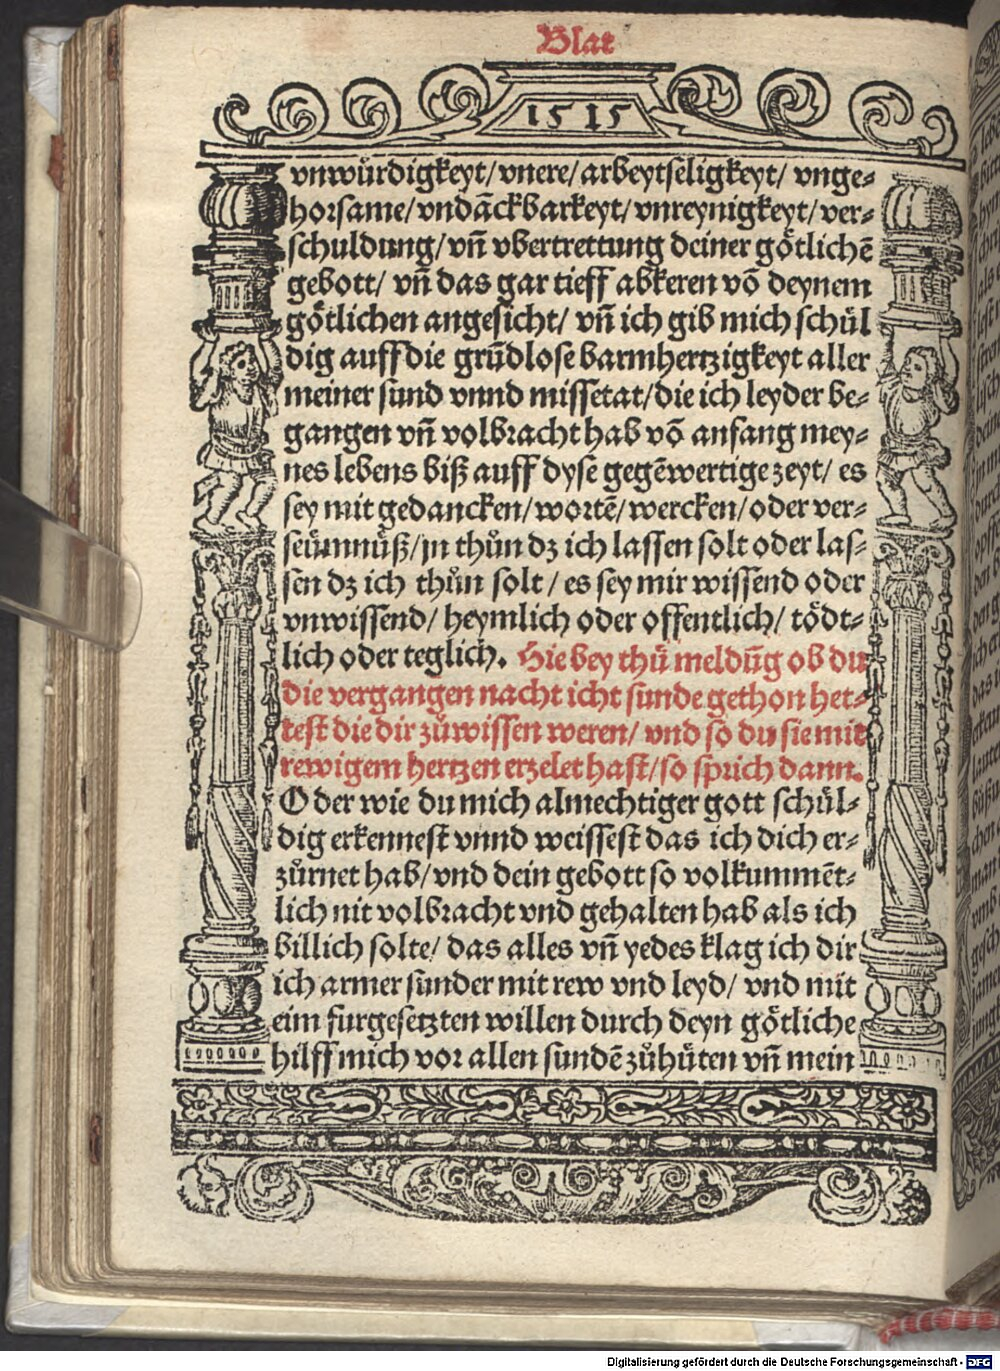 Blat
1515
vnwůrdigkeyt/ vnere/ arbeytseligkeyt/ vnge⸗
horsame/ vndāckbarkeyt/ vnreynigkeyt/ ver⸗
schuldung/ vn̄ vbertrettung deiner gȯtlichē
gebott/ vn̄ das gar tieff abkeren vō deynem
gȯtlichen angesicht/ vn̄ ich gib mich schül
dig auff die grūdlose barmhertzigkeyt aller
meiner sund vnnd missetat/ die ich leyder be⸗
gangen vn̄ volbracht hab vō anfang mey⸗
nes lebens biß auff dyse gegēwertige zeyt/ es
sey mit gedancken/ wortē/ wercken/ oder ver⸗
seümnüß/ jn thůn dz ich lassen solt oder las⸗
sen dz ich thůn solt/ es sey mir wissend oder
vnwissend/ heymlich oder offentlich/ tödt⸗
lich oder teglich. Hie bey thů meldūg ob du
die vergangen nacht icht sunde gethon het⸗
test die dir zůwissen weren/ vnd so du sie mit
rewigem hertzen erzelet hast/ so sprich dann.
Oder wie du mich almechtiger gott schül⸗
dig erkennest vnnd weissest das ich dich er⸗
zůrnet hab/ vnd dein gebott so volkummēt⸗
lich nit volbracht vnd gehalten hab als ich
billich solte/ das alles vn̄ yedes klag ich dir
ich armer sunder mit rew vnd leyd/ vnd mit
eim furgesetzten willen durch deyn gȯtliche
hilff mich vor allen sundē zůhüten vn̄ mein
Digitalisierung gefördert durch die Deutsche Forschungsgemeinschaft - DFG